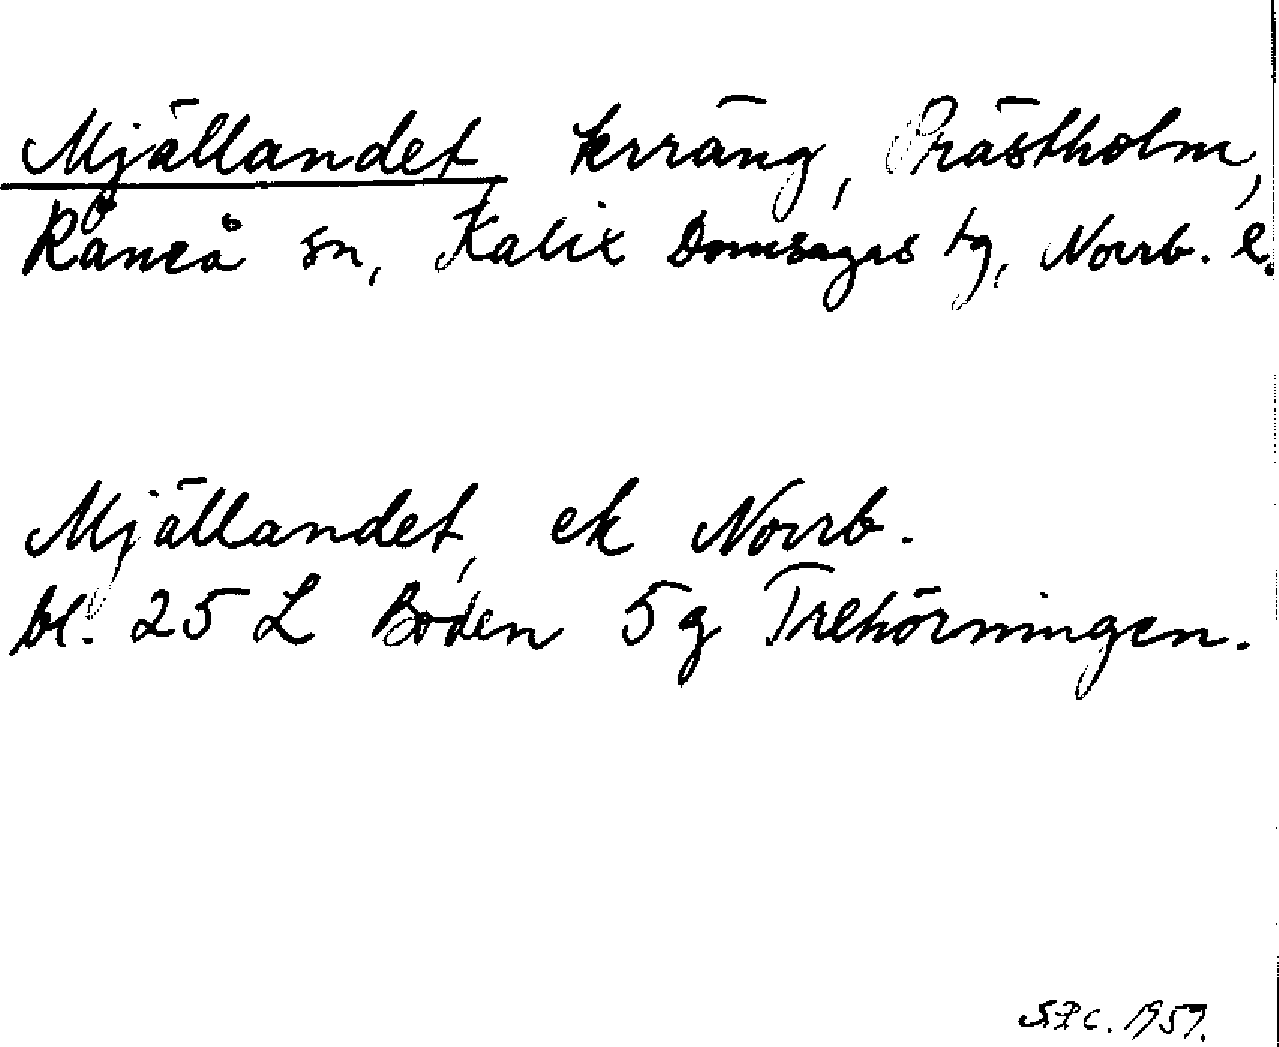 Mjällandet, terräng, Prästholm,
Råneå sn, Kalix Domsagas tg, Norrb. l.
Mjällandet, ek Norrb.
bl. 25 L Boden 5g Trehörningen.
1959.